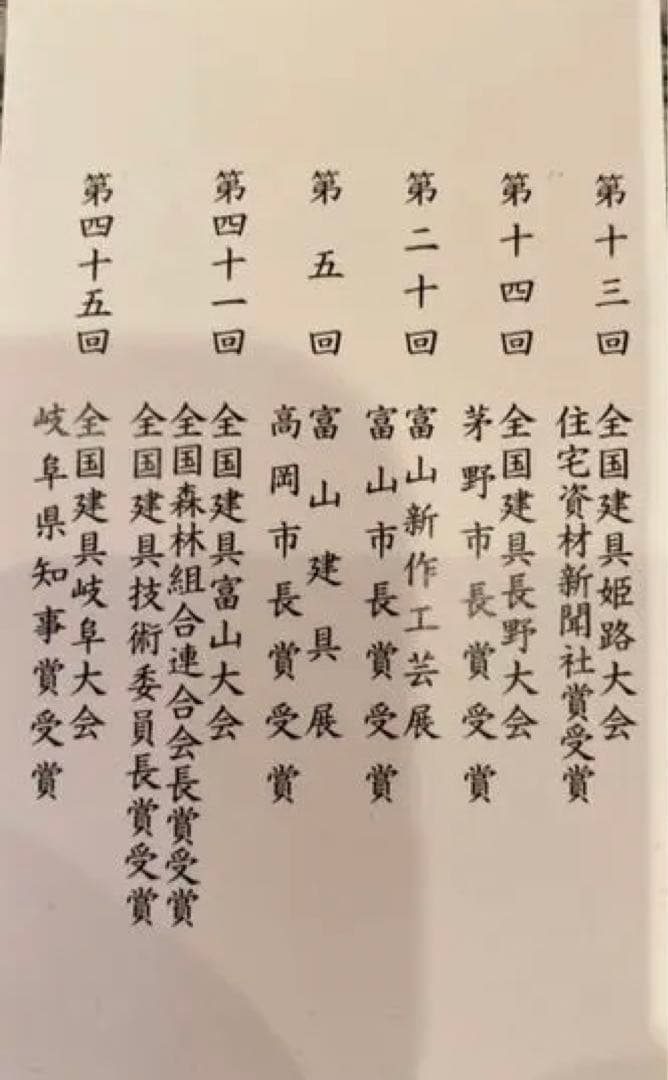 第十三回 全国建具姫路大会
住宅資材新聞社賞受賞
第十四回 全国建具長野大会
茅野市長賞受賞
第二十回 富山新作工芸展
富山市長賞受賞
第五回 富山建具展
高岡市長賞受賞
第四十一回 全国建具富山大会
全国森林組合連合会長賞受賞
全国建具技術委員長賞受賞
第四十五回 全国建具岐阜大会
岐阜県知事賞受賞